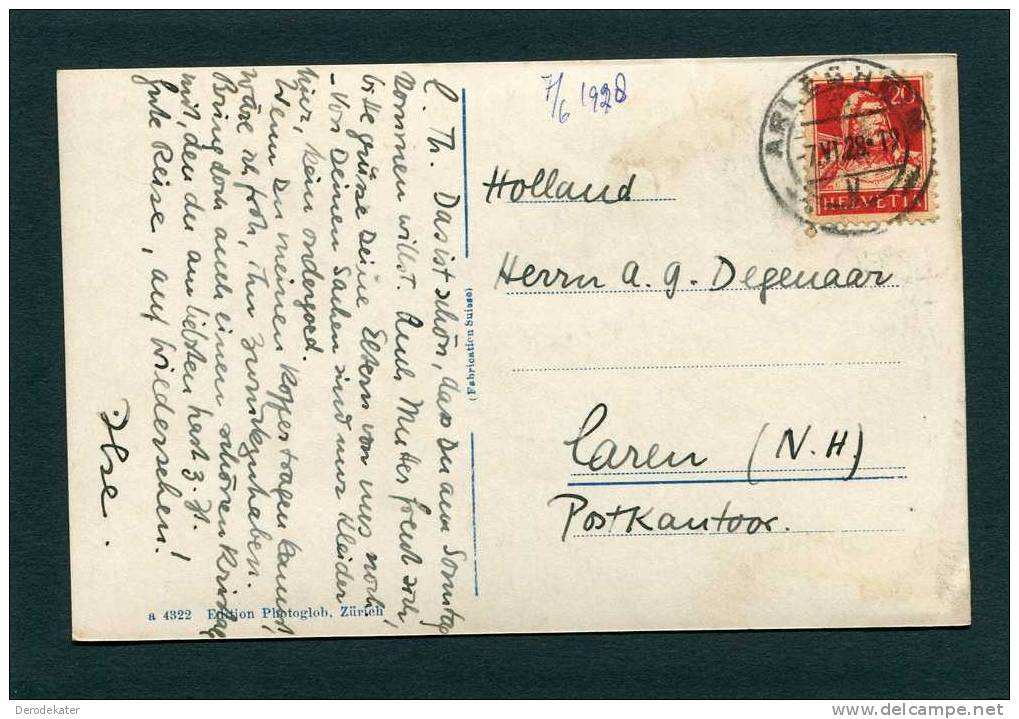 L. Th. Das ist schön, dass Du am Sonntag
kommen willst. Auch Mutter freut sich,
bitte grüsse Deine Eltern von uns noch
- Von Deinen Sachen sind nur Kleider
hier, kein ondergoed.
Wenn Du meinen Koffer tragen kannst,
wäre ich froh, ihn zurückzuhaben.
Bring doch auch einen schönen
mit, den du am liebsten hast z. Zt.
Gute Reise, auf Wiedersehen!
Ilse.
a 4322 Edition Photoglob, Zürich
(Fabrication Suisse)
7/6 1928
20
HELVETIA
7.VI.28
Holland
Herrn A. G. Degenaar
Laren (N.H)
Postkantoor.
Derodekater
www.delcampe.net